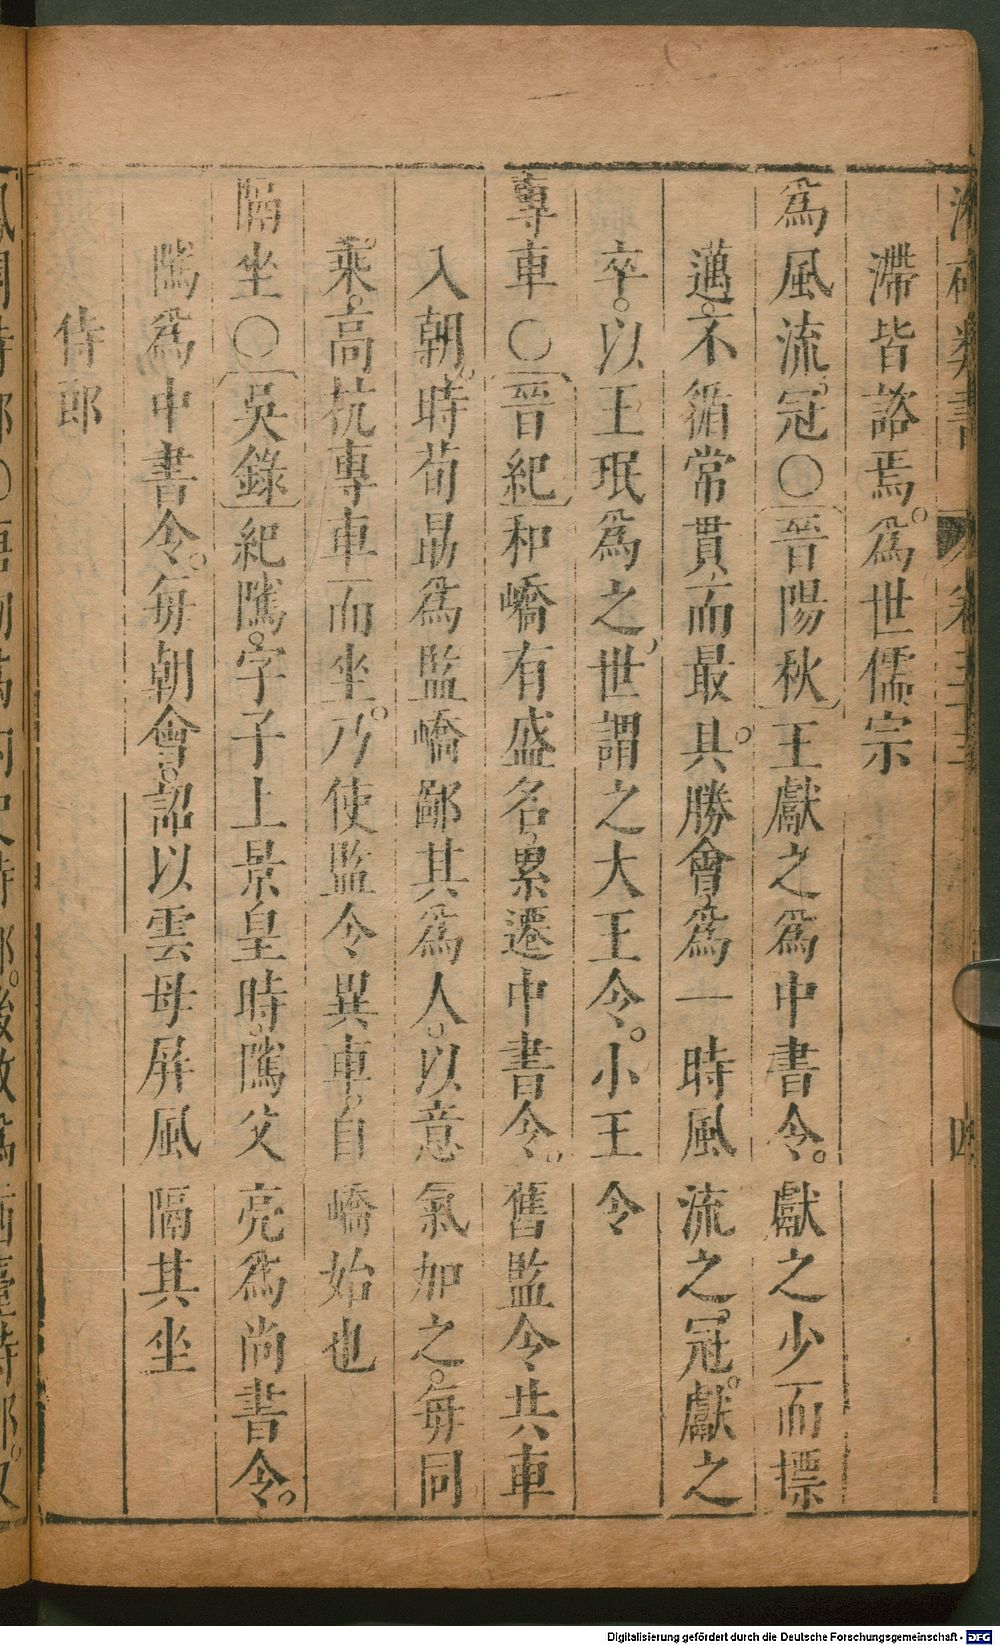 滯皆諮焉。爲世儒宗
爲風流冠○晉陽秋王獻之爲中書令。獻之少而標
邁。不循常貫。而最具。勝會爲一時風流之。冠。獻之
卒。以王珉爲之。世謂之大王令。小王令
專車○晉紀和嶠有盛名。累遷中書令。舊監令共車
入朝。時荀勗爲監嶠鄙其爲人。以意氣加之。每同
乘。高抗專車而坐。乃使監令異車。自嶠始也
隔坐○吳錄紀隲。字子上景皇時。隲父亮爲尚書令。
隲爲中書令。每朝會。詔以雲母屏風隔其坐
侍郎
Digitalisierung gefördert durch die Deutsche Forschungsgemeinschaft - DFG